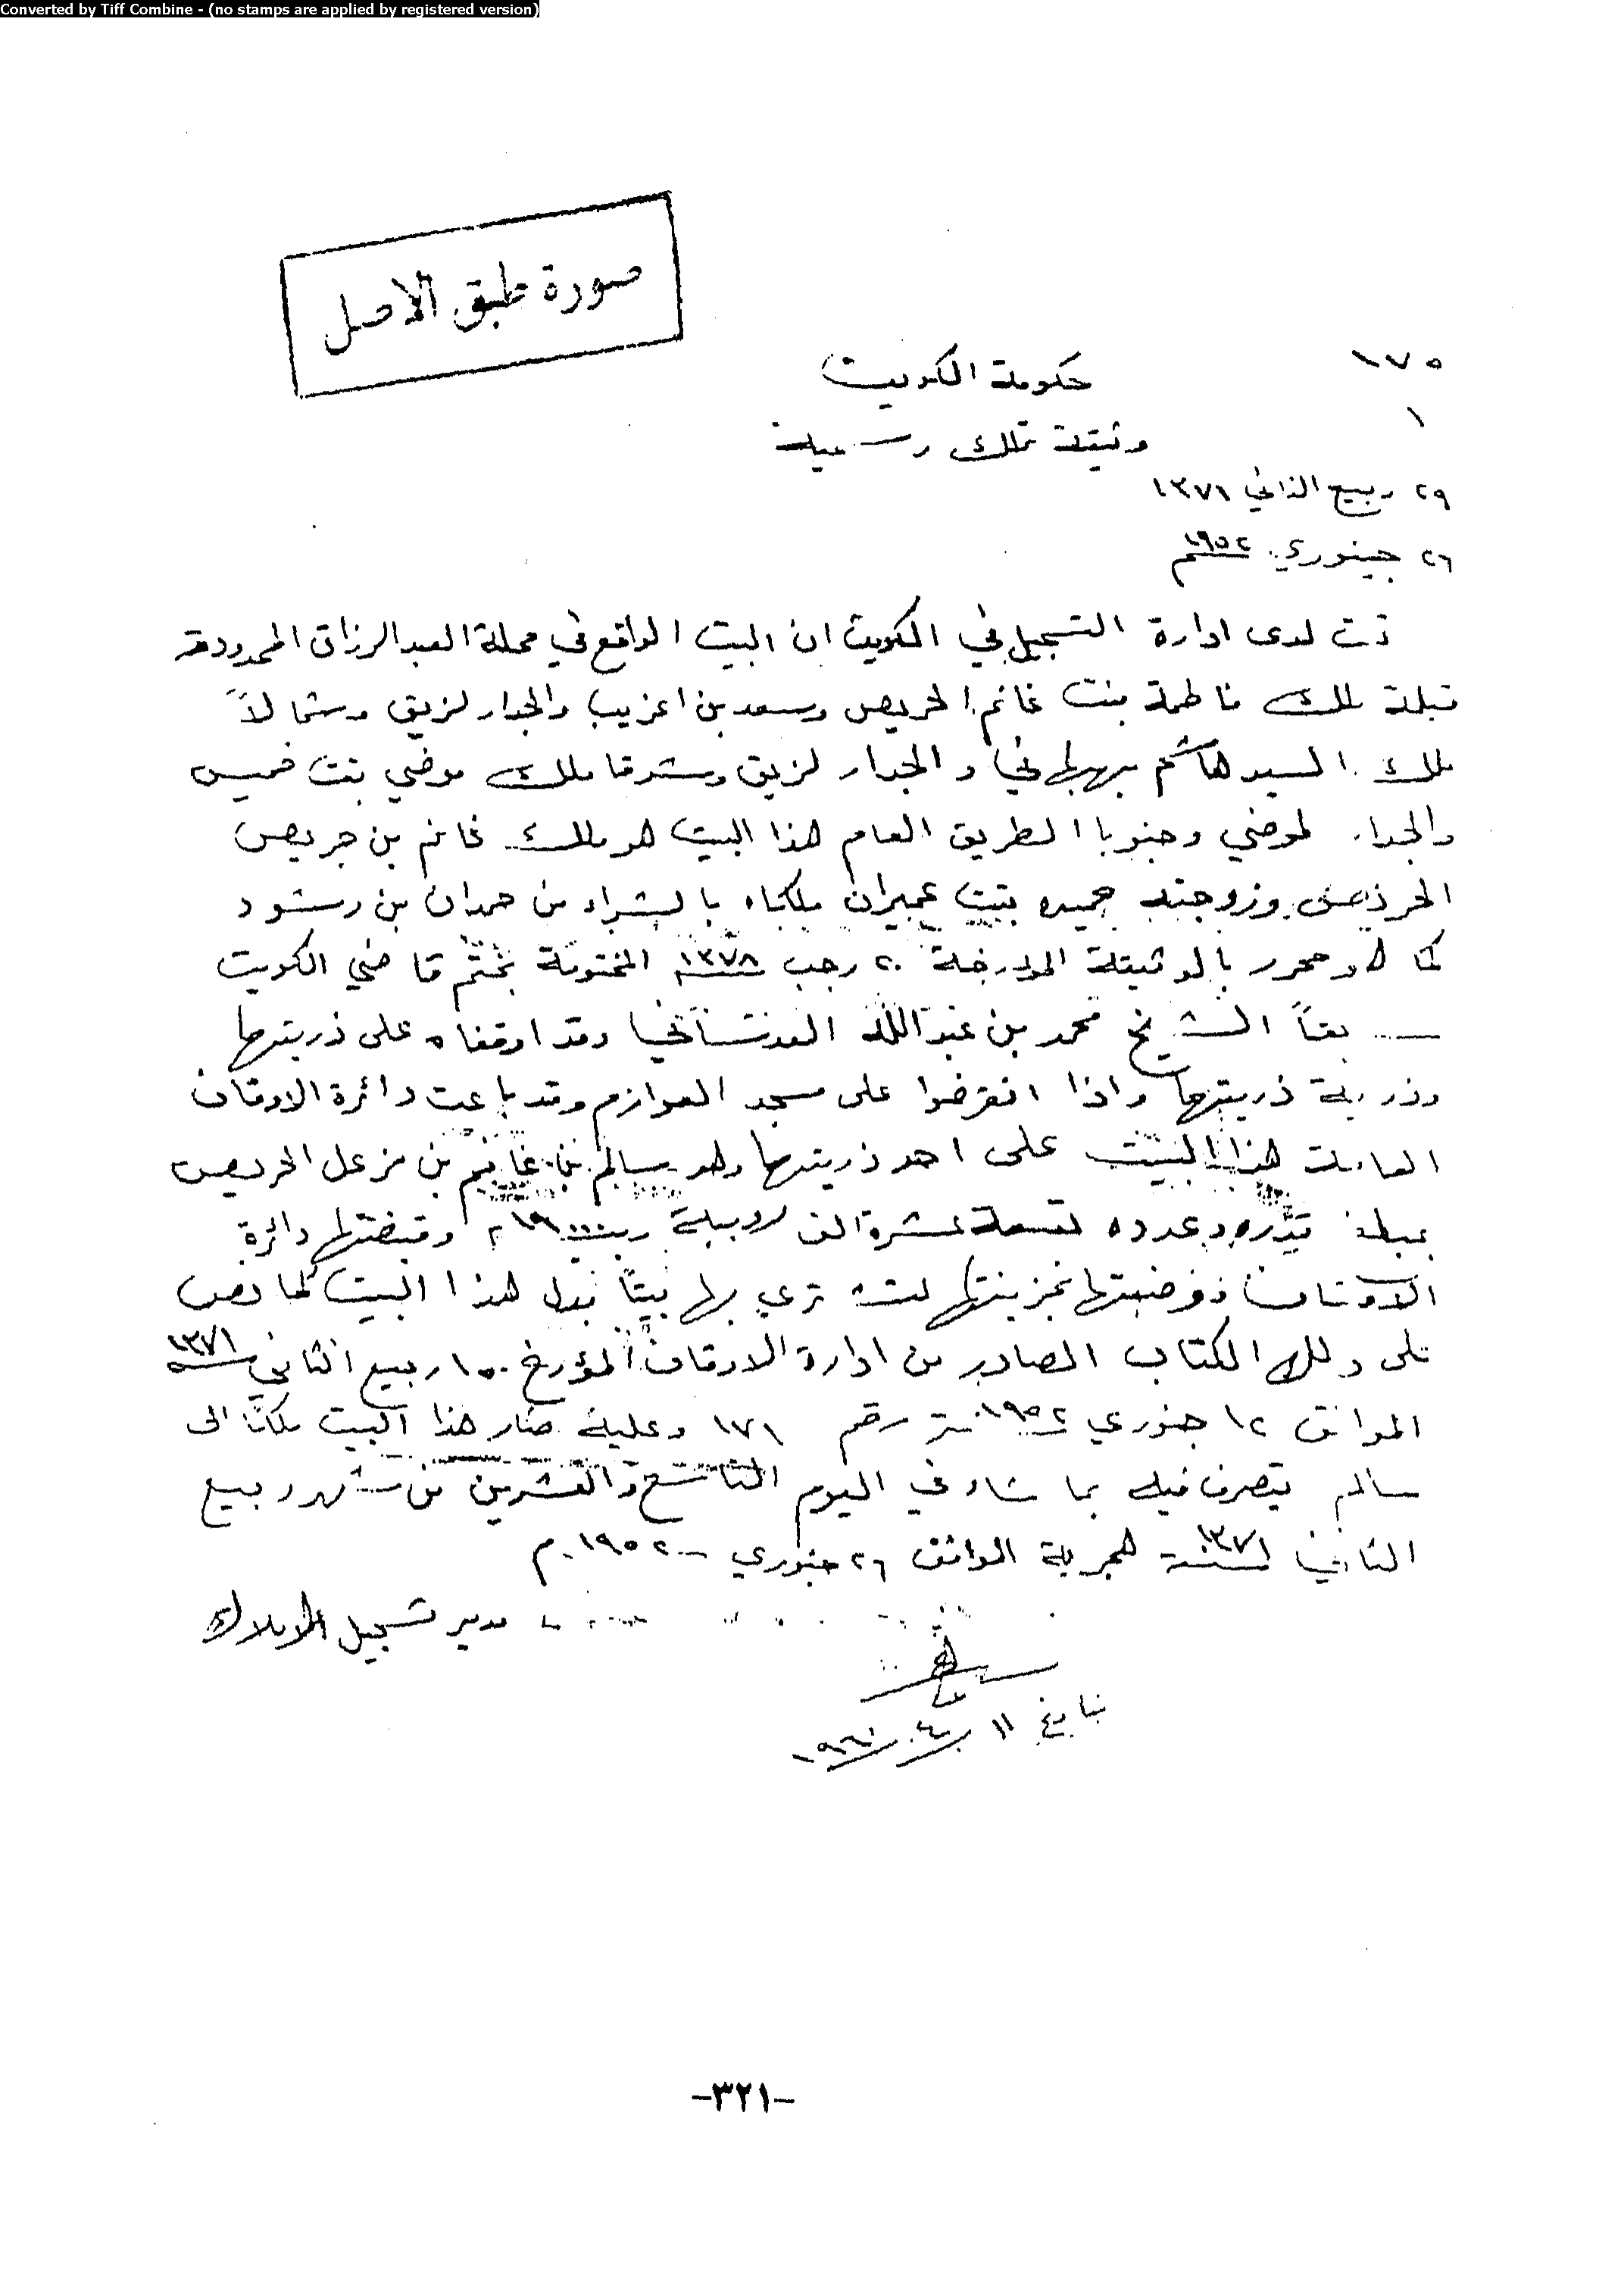 Converted by Tiff Combine - (no stamps are applied by registered version)
صورة طبق الاصل
١٧٥
١
حكومة الكويت
وثيقة تملك رسمية
٢٩ ربيع الثاني ١٣٧١
٢٦ جينوري ١٩٥٢م
ثبت لدى ادارة التسجيل في الكويت ان البيت الواقع في محلة العبد الرزاق المحدودة
قبلة ملك فاطمة بنت غانم الحريص وسعد بن اعزيب والجدار لزيق وشمالاً
ملك السيد هاشم بهبهاني والجدار لزيق وشرقا ملك موضي بنت خميس
والجدار لموضي وجنوبا الطريق العام هذا البيت هو ملك غانم بن جريص
وزوجته بنت عميران ملكاه بالشراء من حمدان بن رشود
كما هو محرر بالوثيقة المؤرخة ٢٠ رجب المختومة بختم قاضي الكويت
الشيخ محمد بن عبد الله العدساني وقد اوقفاه على ذريتهما
وذرية ذريتهما واذا انقرضوا على مسجد العوازم وقد باعت دائرة الاوقاف
العامة هذا البيت على احد ذريتهما وهو سالم بن غانم بن مزعل الحريص
بمبلغ قدره وعدده تسعة عشرة الف روبية وقبضتها دائرة
الاوقاف فوضعتها بخزينتها لتشتري بها بيتاً بدل هذا البيت كما نص
على ذلك الكتاب الصادر من ادارة الاوقاف المؤرخ ١٥ ربيع الثاني ١٣٧١
الموافق ١٢ جنوري ١٩٥٢ رقم ١٧١ وعليه صار هذا البيت ملكاً الى
سالم يتصرف فيه بما شاء في اليوم التاسع والعشرين من شهر ربيع
الثاني لسنة ١٣٧١ هجرية الموافق ٢٦ جنوري ١٩٥٢م
مدير تسجيل الاملاك
بتاريخ ١١/٤/١٩٦٠
-٣٢١-